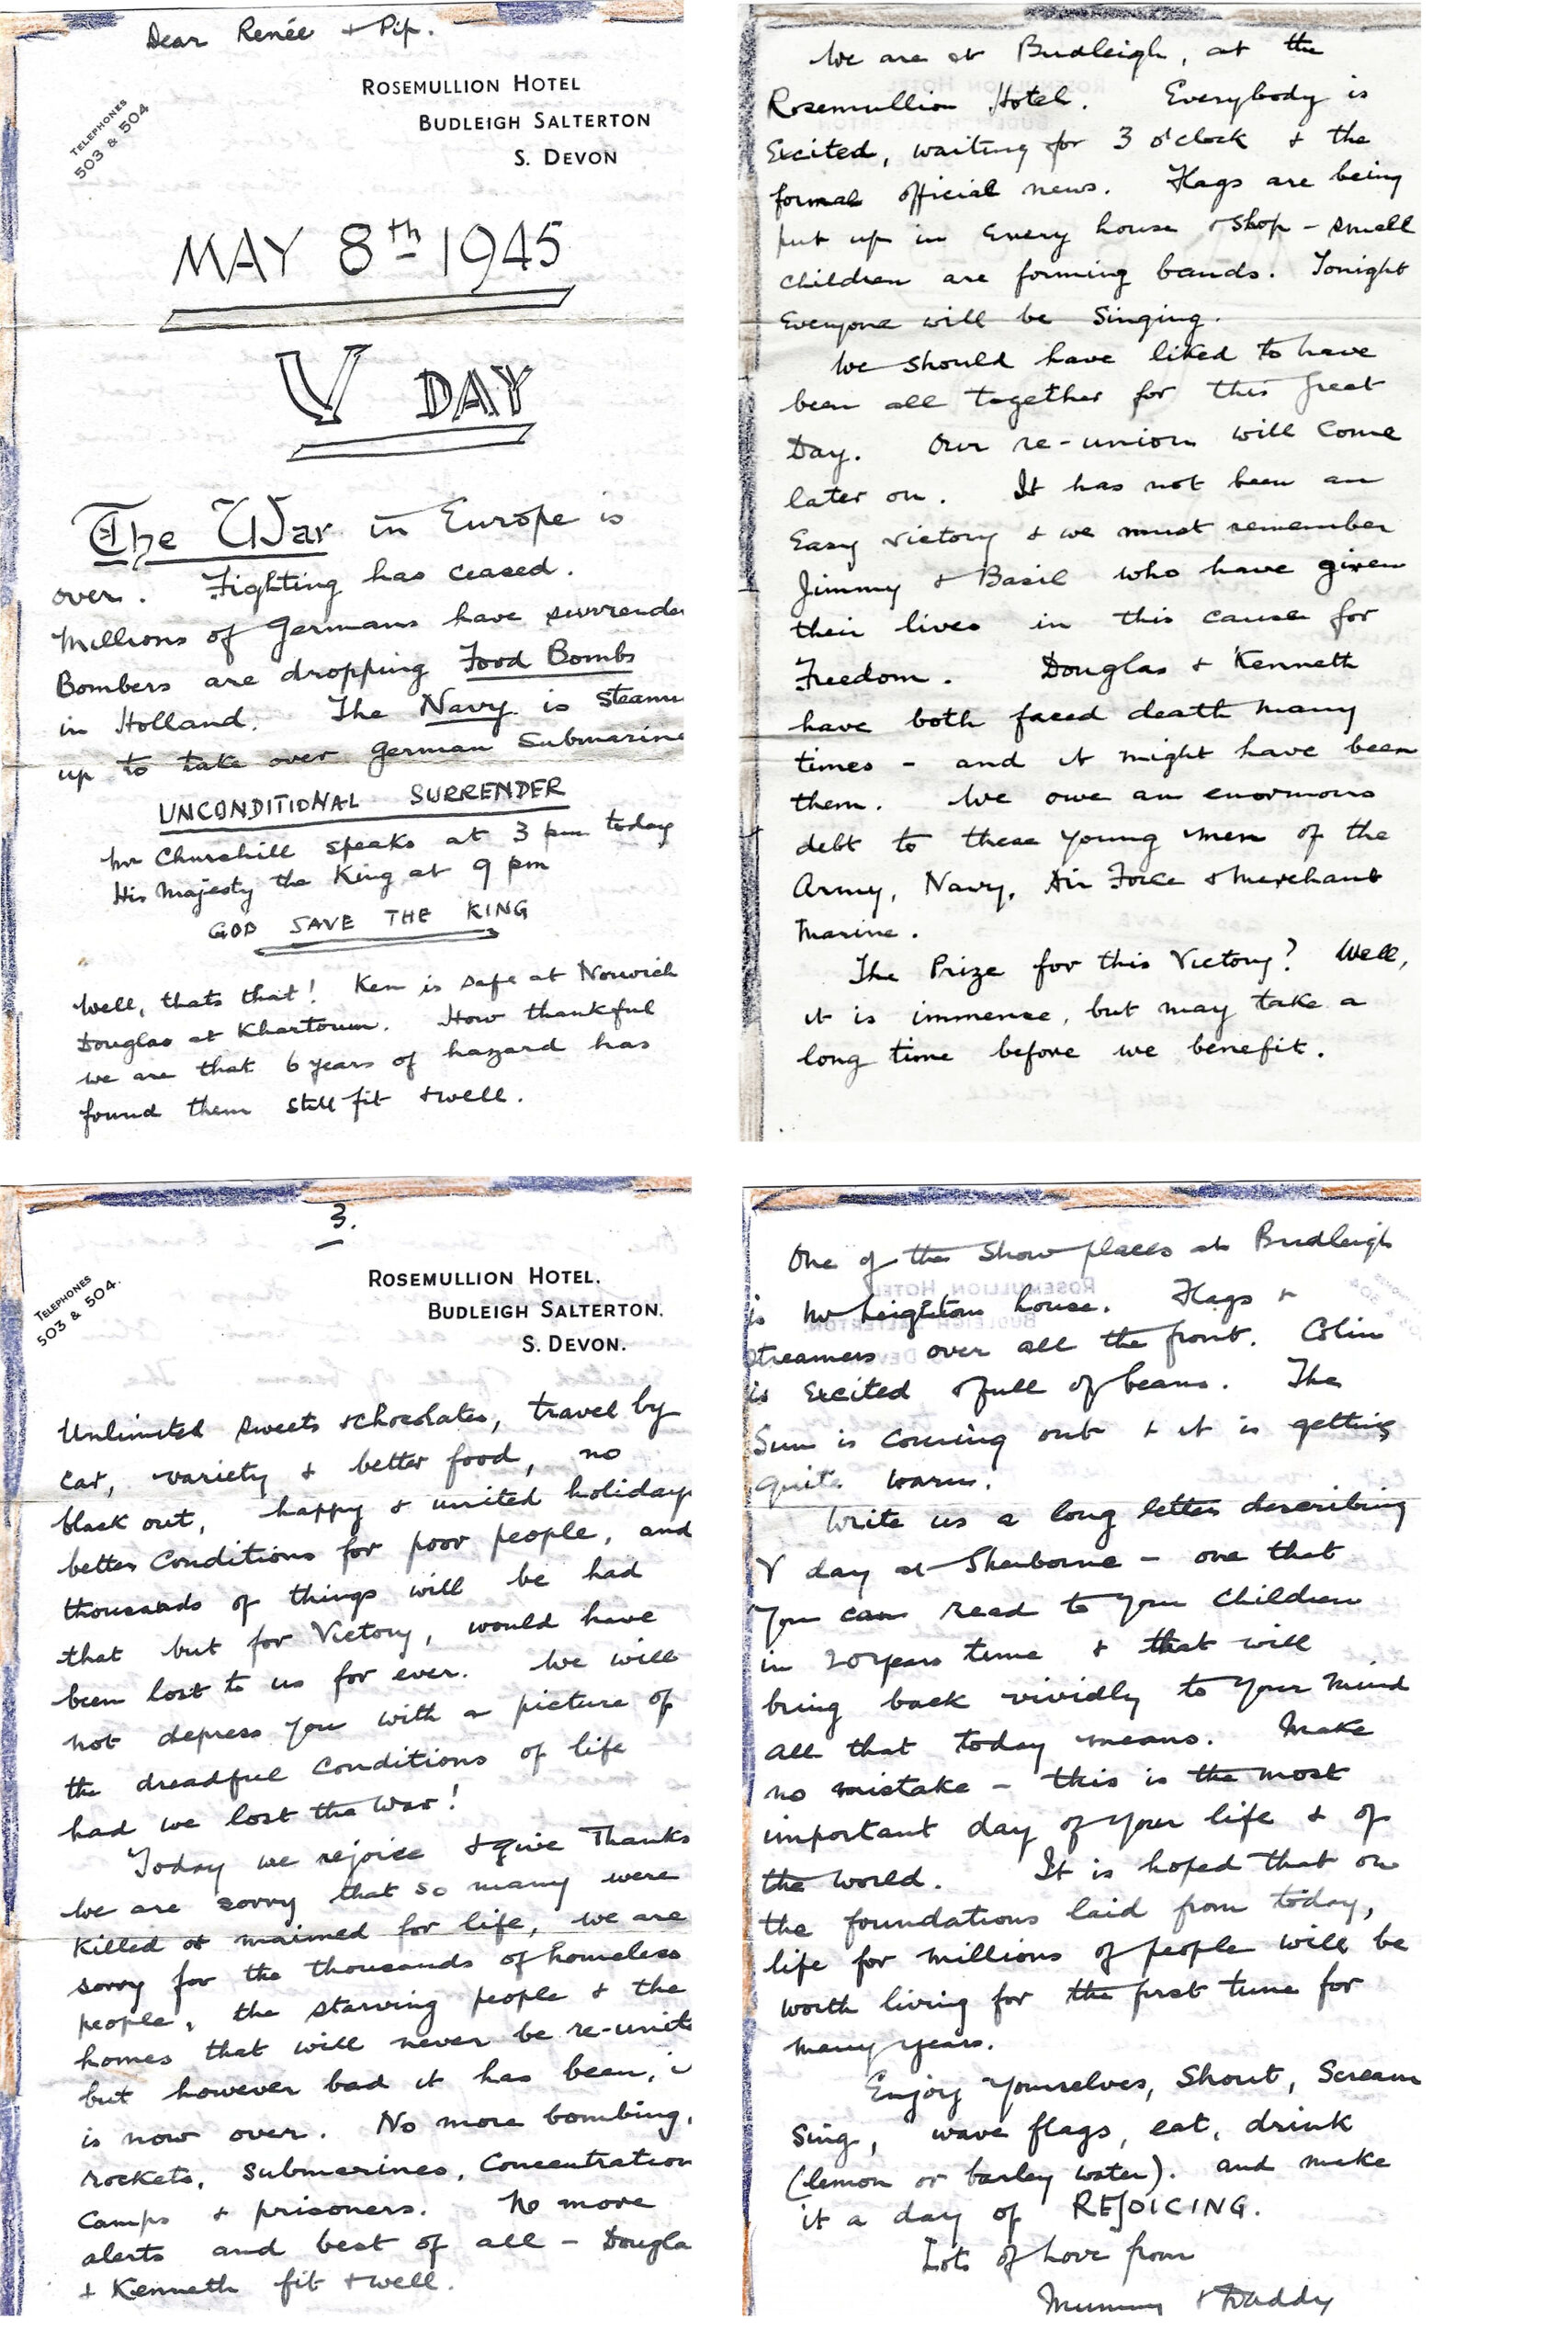 Dear Renée + Pip.
ROSEMULLION HOTEL
BUDLEIGH SALTERTON
S. DEVON
TELEPHONES
503 & 504
MAY 8th 1945
V DAY
The War in Europe is
over. Fighting has ceased.
Millions of Germans have surrende
Bombers are dropping Food Bombs
in Holland. The Navy is steami
up to take over German Submarine
UNCONDITIONAL SURRENDER
Mr Churchill speaks at 3 pm today
His Majesty the King at 9 pm
GOD SAVE THE KING
Well, thats that! Ken is safe at Norwich
Douglas at Khartoum. How thankful
we are that 6 years of hazard has
found them still fit + well.
We are at Budleigh, at the
Rosemullion Hotel. Everybody is
Excited, waiting for 3 o'clock + the
formal official news. Flags are being
put up in every house + shop - small
children are forming bands. Tonight
Everyone will be Singing.
We should have liked to have
been all together for this great
Day. Our re-union will come
later on. It has not been an
Easy victory + we must remember
Jimmy + Basil who have given
their lives in this cause for
Freedom. Douglas + Kenneth
have both faced death many
times - and it might have been
them. We owe an enormous
debt to these young men of the
Army, Navy, Air Force + Merchant
Marine.
The Prize for this Victory? Well,
it is immense, but may take a
long time before we benefit.
3.
ROSEMULLION HOTEL.
BUDLEIGH SALTERTON.
S. DEVON.
TELEPHONES
503 & 504.
Unlimited sweets + chocolates, travel by
car, variety + better food, no
black out, happy + united holiday
better conditions for poor people, and
thousands of things will be had
that but for Victory, would have
been lost to us for ever. We will
not depress you with a picture of
the dreadful conditions of life
had we lost the war!
Today we rejoice + give Thanks
We are sorry that so many were
killed or maimed for life, we are
sorry for the thousands of homeless
people, the starving people + the
homes that will never be re-unite
but however bad it has been, i
is now over. No more bombing,
rockets, submarines, Concentration
Camps + prisoners. No more
alerts and best of all - Dougla
+ Kenneth fit + well.
One of the Show places at Budleigh
is Mr Leighton house. Flags +
streamers over all the front. Colin
is Excited + full of beans. The
Sun is coming out + it is getting
quite warm.
Write us a long letter describing
V day at Sherborne - one that
You can read to your children
in 20 years time + that will
bring back vividly to your mind
all that today means. Make
no mistake - this is the most
important day of your life + of
the world. It is hoped that on
the foundations laid from today,
life for millions of people will be
worth living for the first time for
many years.
Enjoy yourselves, Shout, Scream
Sing, wave flags, eat, drink
(lemon or barley water). and make
it a day of REJOICING.
Lots of Love from
Mummy + Daddy